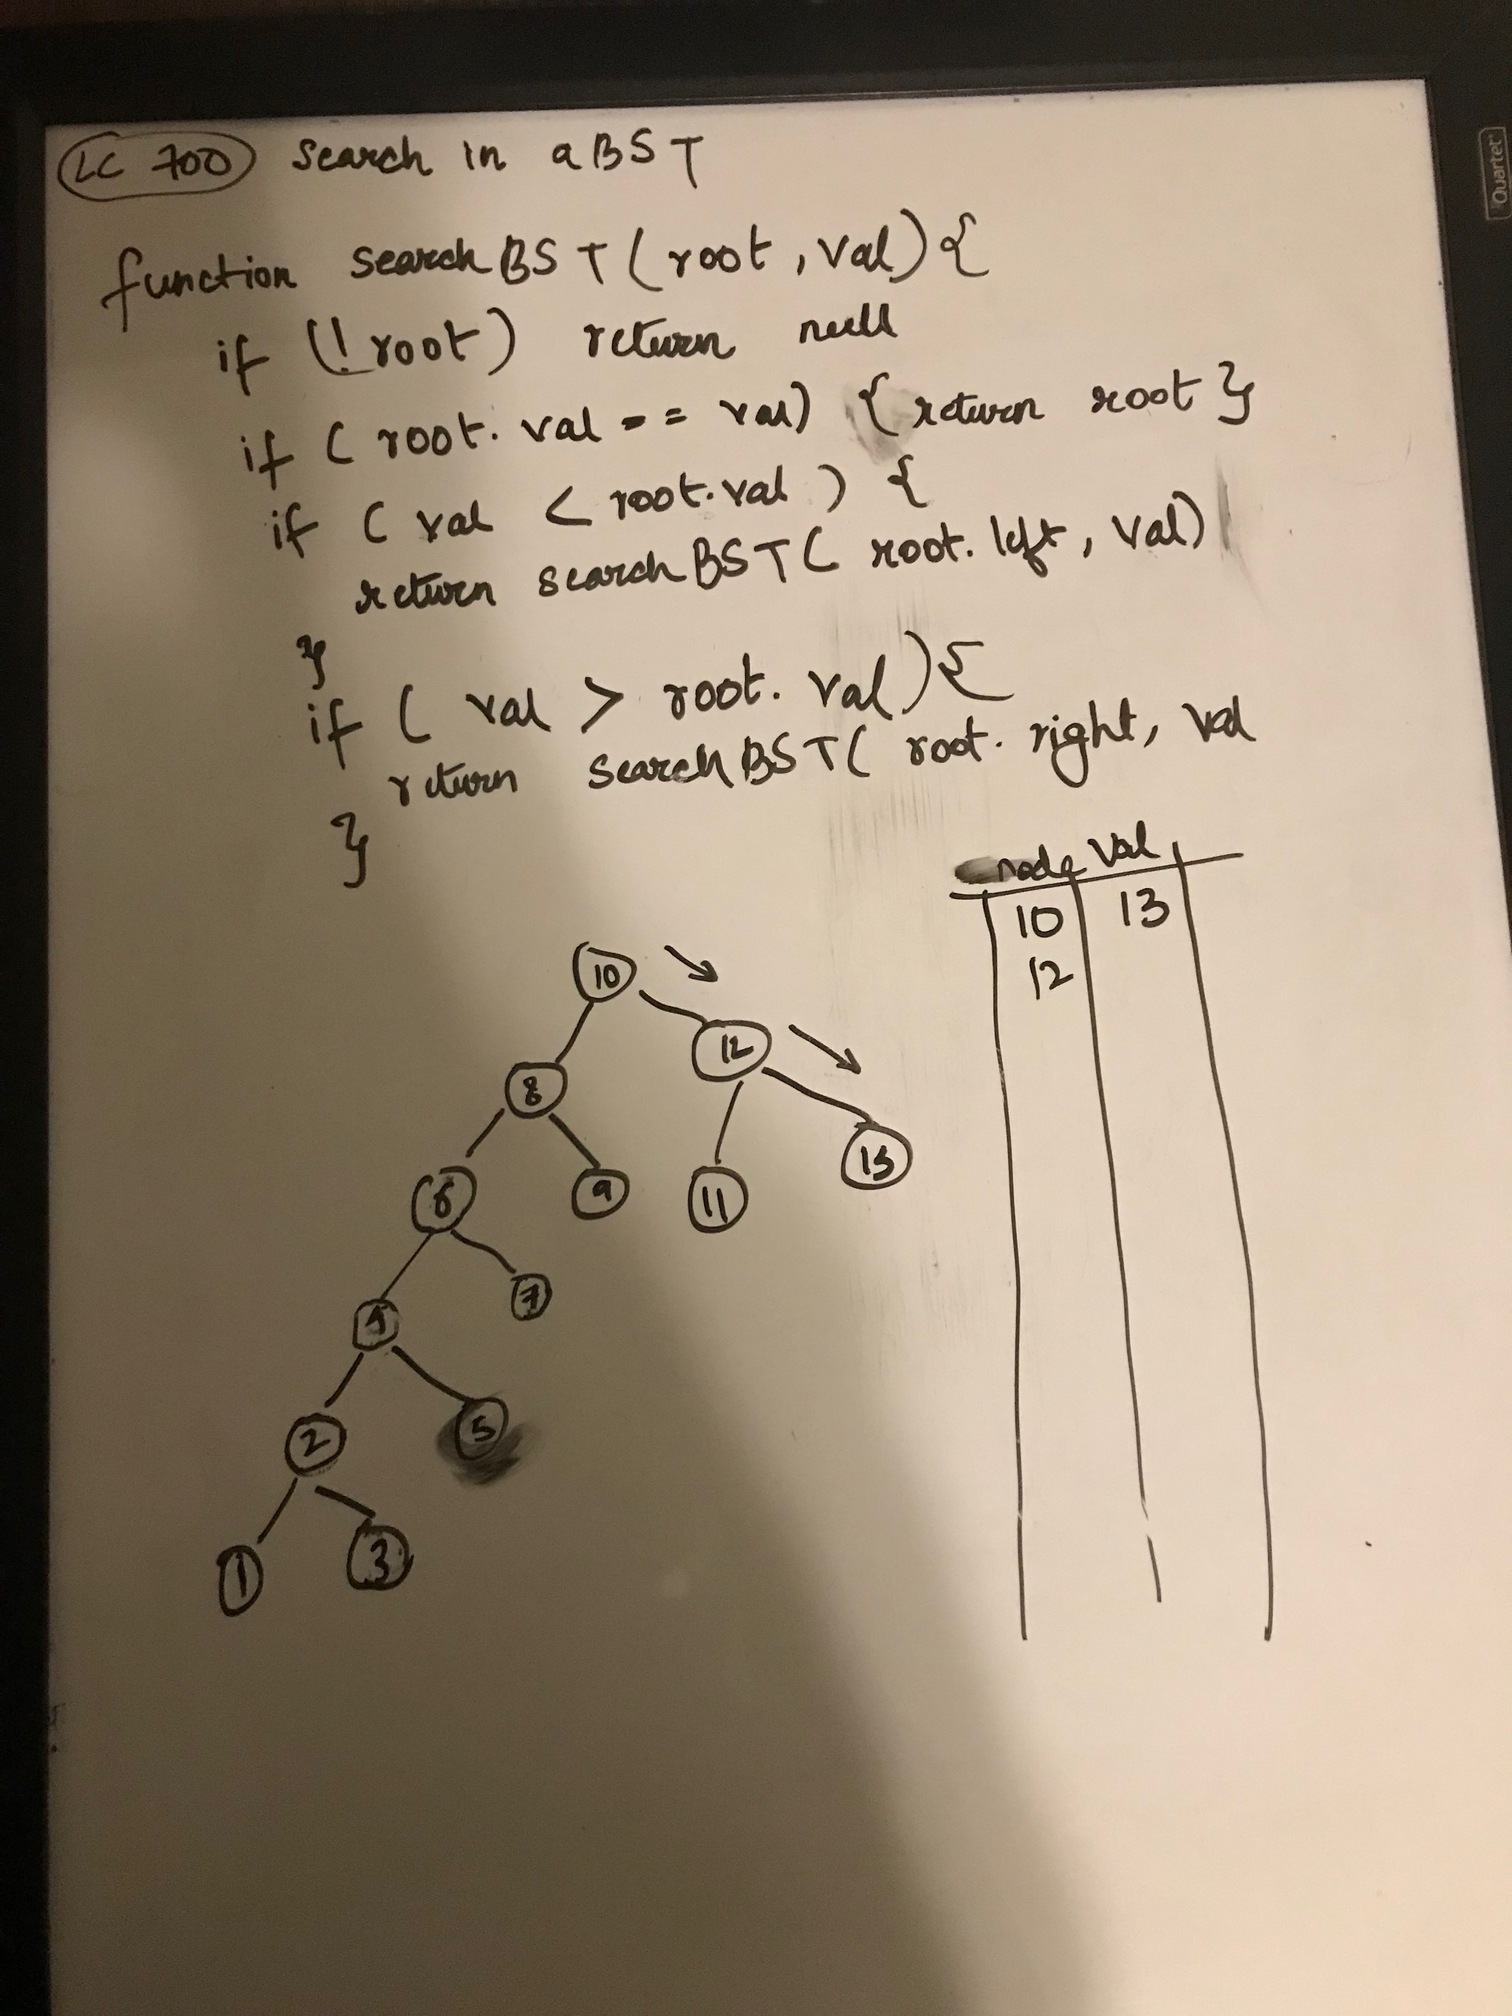 LC 700 Search in a BST
Quartet
function searchBST(root, val){
if (!root) return null
if (root.val == val) {return root}
if (val < root.val) {
return searchBST(root.left, val)
}
if (val > root.val){
return searchBST(root.right, val
}
node val
10 13
12
10
12
8
13
6 9 11
7
4
2 5
1 3